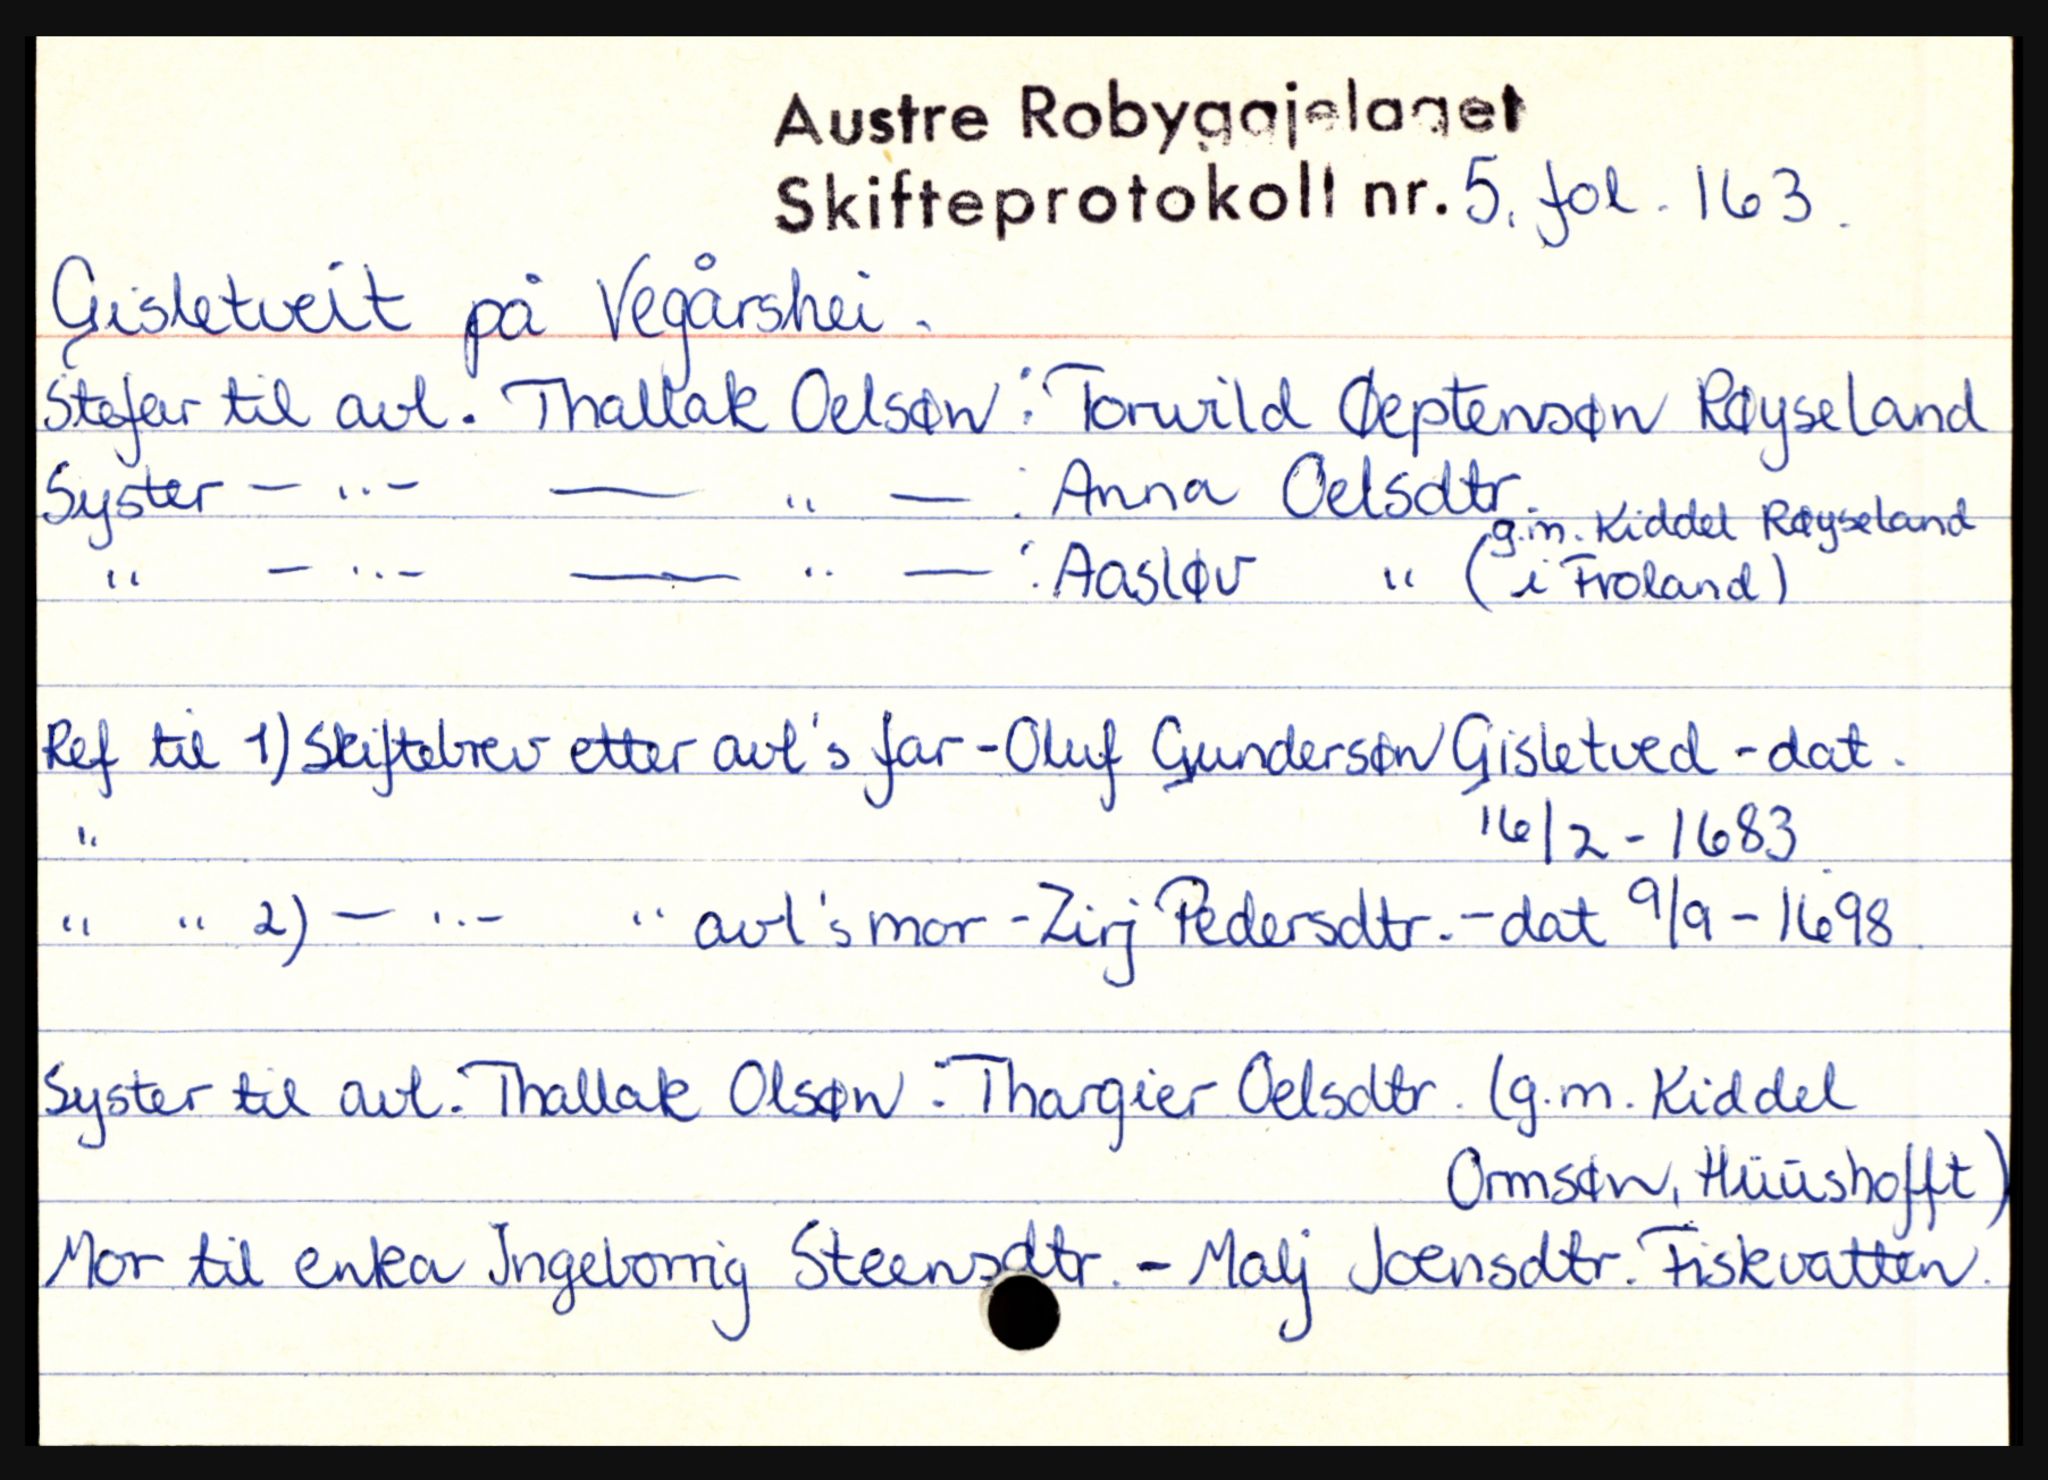 Austre Robyggjelaget
Skifteprotokoll nr. 5, fol. 163.
Gisletveit på Vegårshei.
Stefar til avl. Thallak Oelsøn : Torwild Øeptensøn Røyseland
Syster — " — — " — : Anna Oelsdtr.
g.m. Kiddel Røyseland
" — " — — " — : Aasløv " (i Froland)
Ref til 1) Skiftebrev etter avl's far - Oluf Gundersøn Gisletved - dat.
" 16/2 - 1683
" " 2) — " — " avl's mor - Zirj Pedersdtr. - dat 9/9 - 1698.
Syster til avl. Thallak Olsøn : Thargier Oelsdtr. (g.m. Kiddel
Ormsøn, Hüüshofft)
Mor til enka Ingeborrig Steensdtr. - Malj Joensdtr. Fiskvatten.